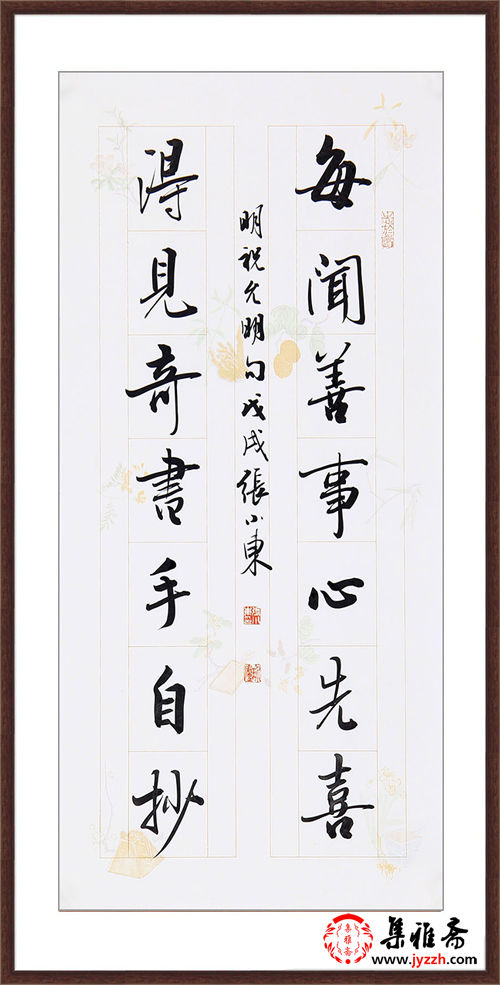 每聞善事心先喜
得見奇書手自抄
明祝允明句戊戌張小東
集雅斋
www.jyzzh.com